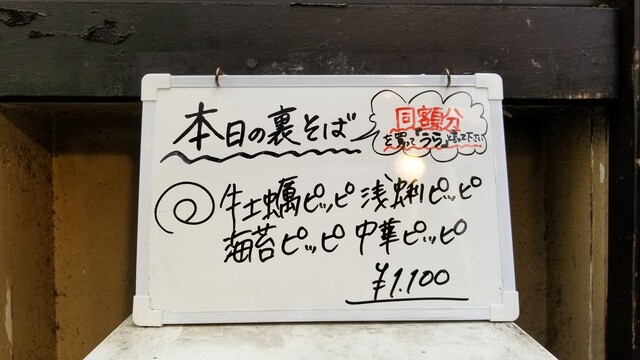 本日の裏そば
同額分
を買って「うら」と言って下さい
牡蠣ピッピ 浅蜊ピッピ
海苔ピッピ 中華ピッピ
¥1.100